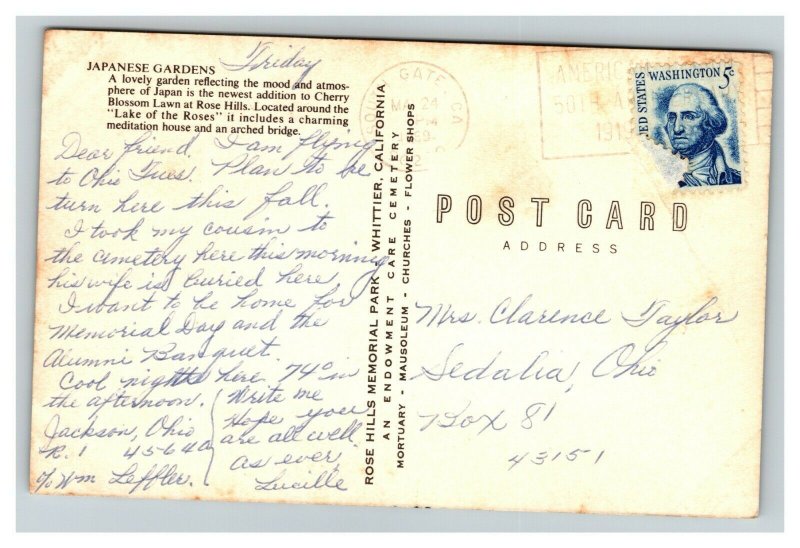 Friday
JAPANESE GARDENS
A lovely garden reflecting the mood and atmos-
phere of Japan is the newest addition to Cherry
Blossom Lawn at Rose Hills. Located around the
"Lake of the Roses" it includes a charming
meditation house and an arched bridge.
Dear friend, I am flying
to Ohio Tues. Plan to be
turn here this fall.
I took my cousin to
the cemetery here this morning
his wife is buried here
I want to be home for
Memorial Day and the
Alumni Banquet.
Cool nights here 74° in
the afternoon.
Jackson, Ohio
R. 1 45640
c/o Wm Leffler.
Write me
Hope you
are all well
As ever
Lucille
ROSE HILLS MEMORIAL PARK - WHITTIER, CALIFORNIA
AN ENDOWMENT CARE CEMETERY
MORTUARY - MAUSOLEUM - CHURCHES - FLOWER SHOPS
GATE, CA
24
AMERIC
50TH A
191
WASHINGTON 5c
ED STATES
POST CARD
ADDRESS
Mrs. Clarence Taylor
Sedalia, Ohio
Box 81
43151